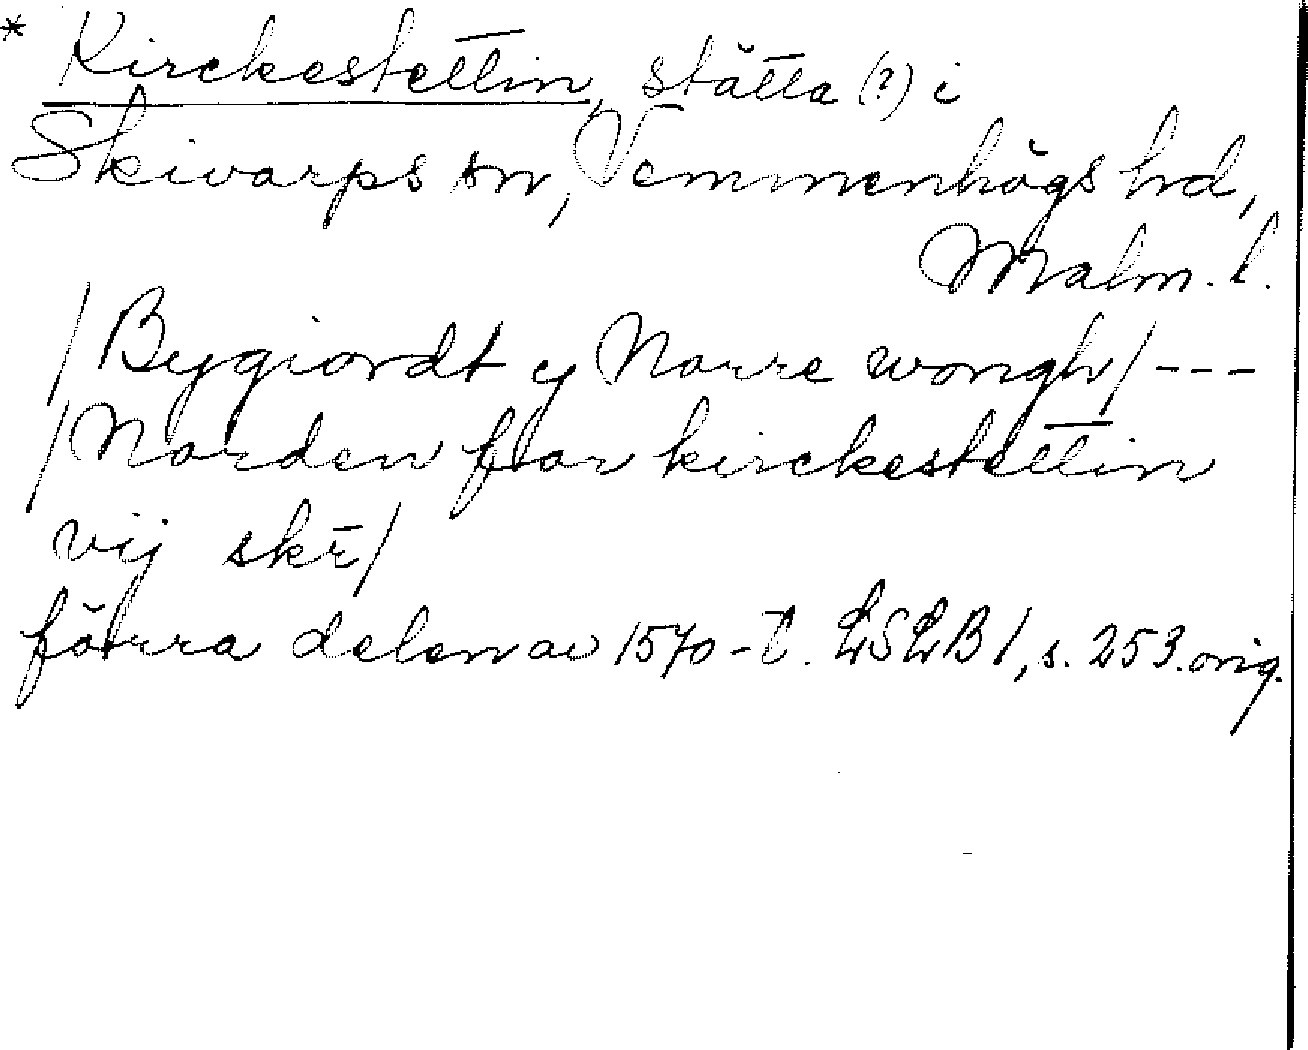 * Kirckestettin, stätta (?) i
Skivarps sn, Vemmenhögs hd,
Malm. l.
/Bygiordt y Norre wongh/---
/Norden for kirckestettin
vij skr̄/
förra delen av 1570-t. LSLB 1, s. 253. orig.